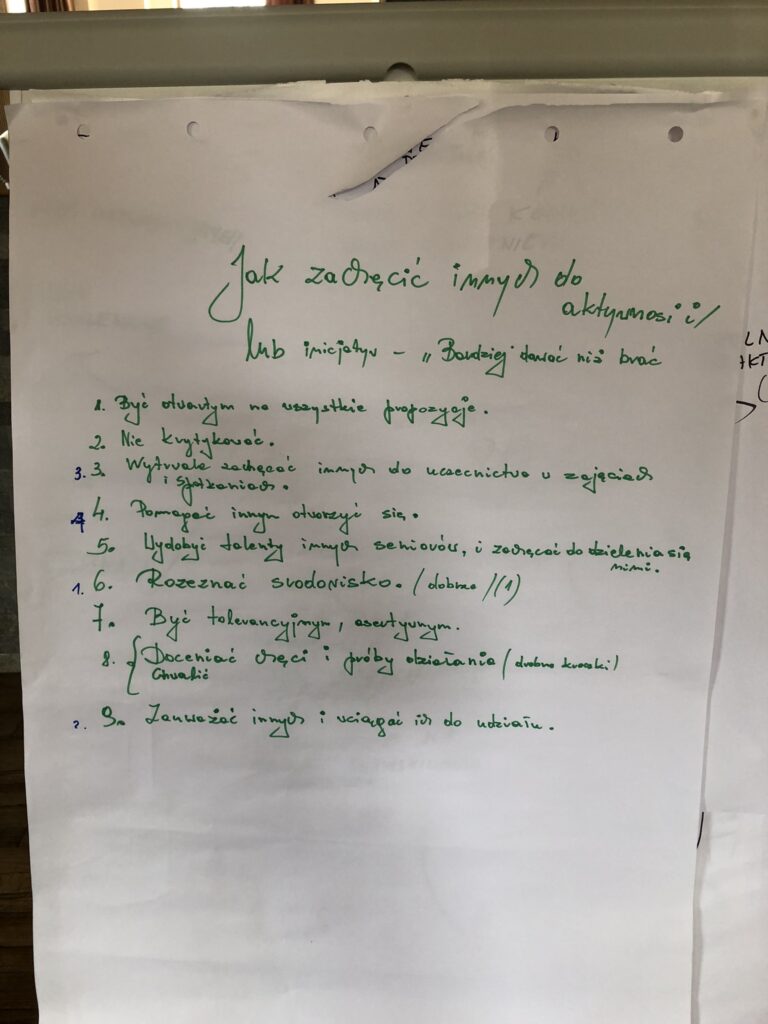 Jak zachęcić innych do
aktywnosi i/
lub inicjatyw - „Bardziej dawać niż brać
1. Być otwartym na wszystkie propozycje.
2. Nie krytykować.
3. 3. Wytrwale zachęcać innych do uczecnictwa w zajęciach
i spotkaniach.
4 4. Pomagać innym otworzyć się.
5. Wydobyć talenty innych seniorów, i zachęcać do dzielenia się
nimi.
1. 6. Rozeznać srodowisko. / dobrze / (1)
7. Być tolerancyjnym, asertywnym.
8. Doceniać chęci i próby działania / drobne kroczki /
Chwalić
2. 9. Zauważać innych i wciągać ich do udziału.